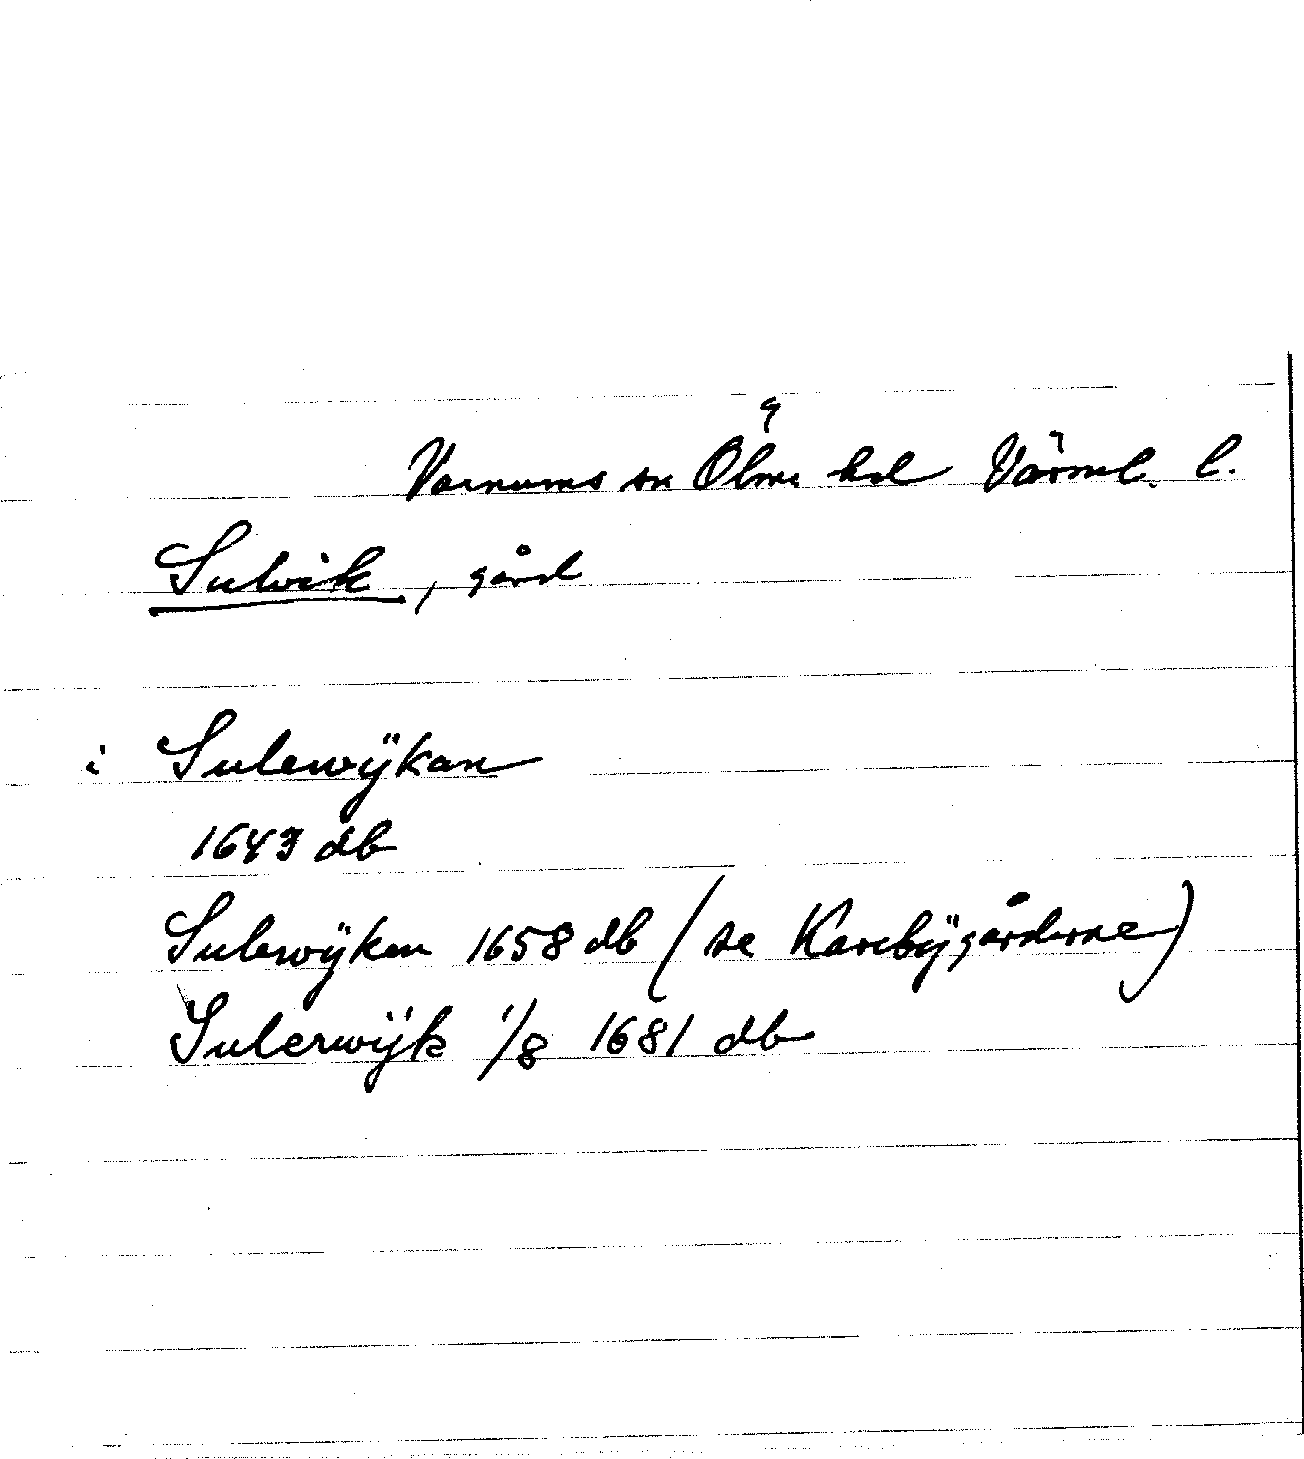 Varnums sn Ölme hd Värml. l.
Sulvik, gård
i Sulewÿkan
1643 db
Sulewÿken 1658 db (se Karebÿgårderne)
Sulerwÿk 1/8 1681 db